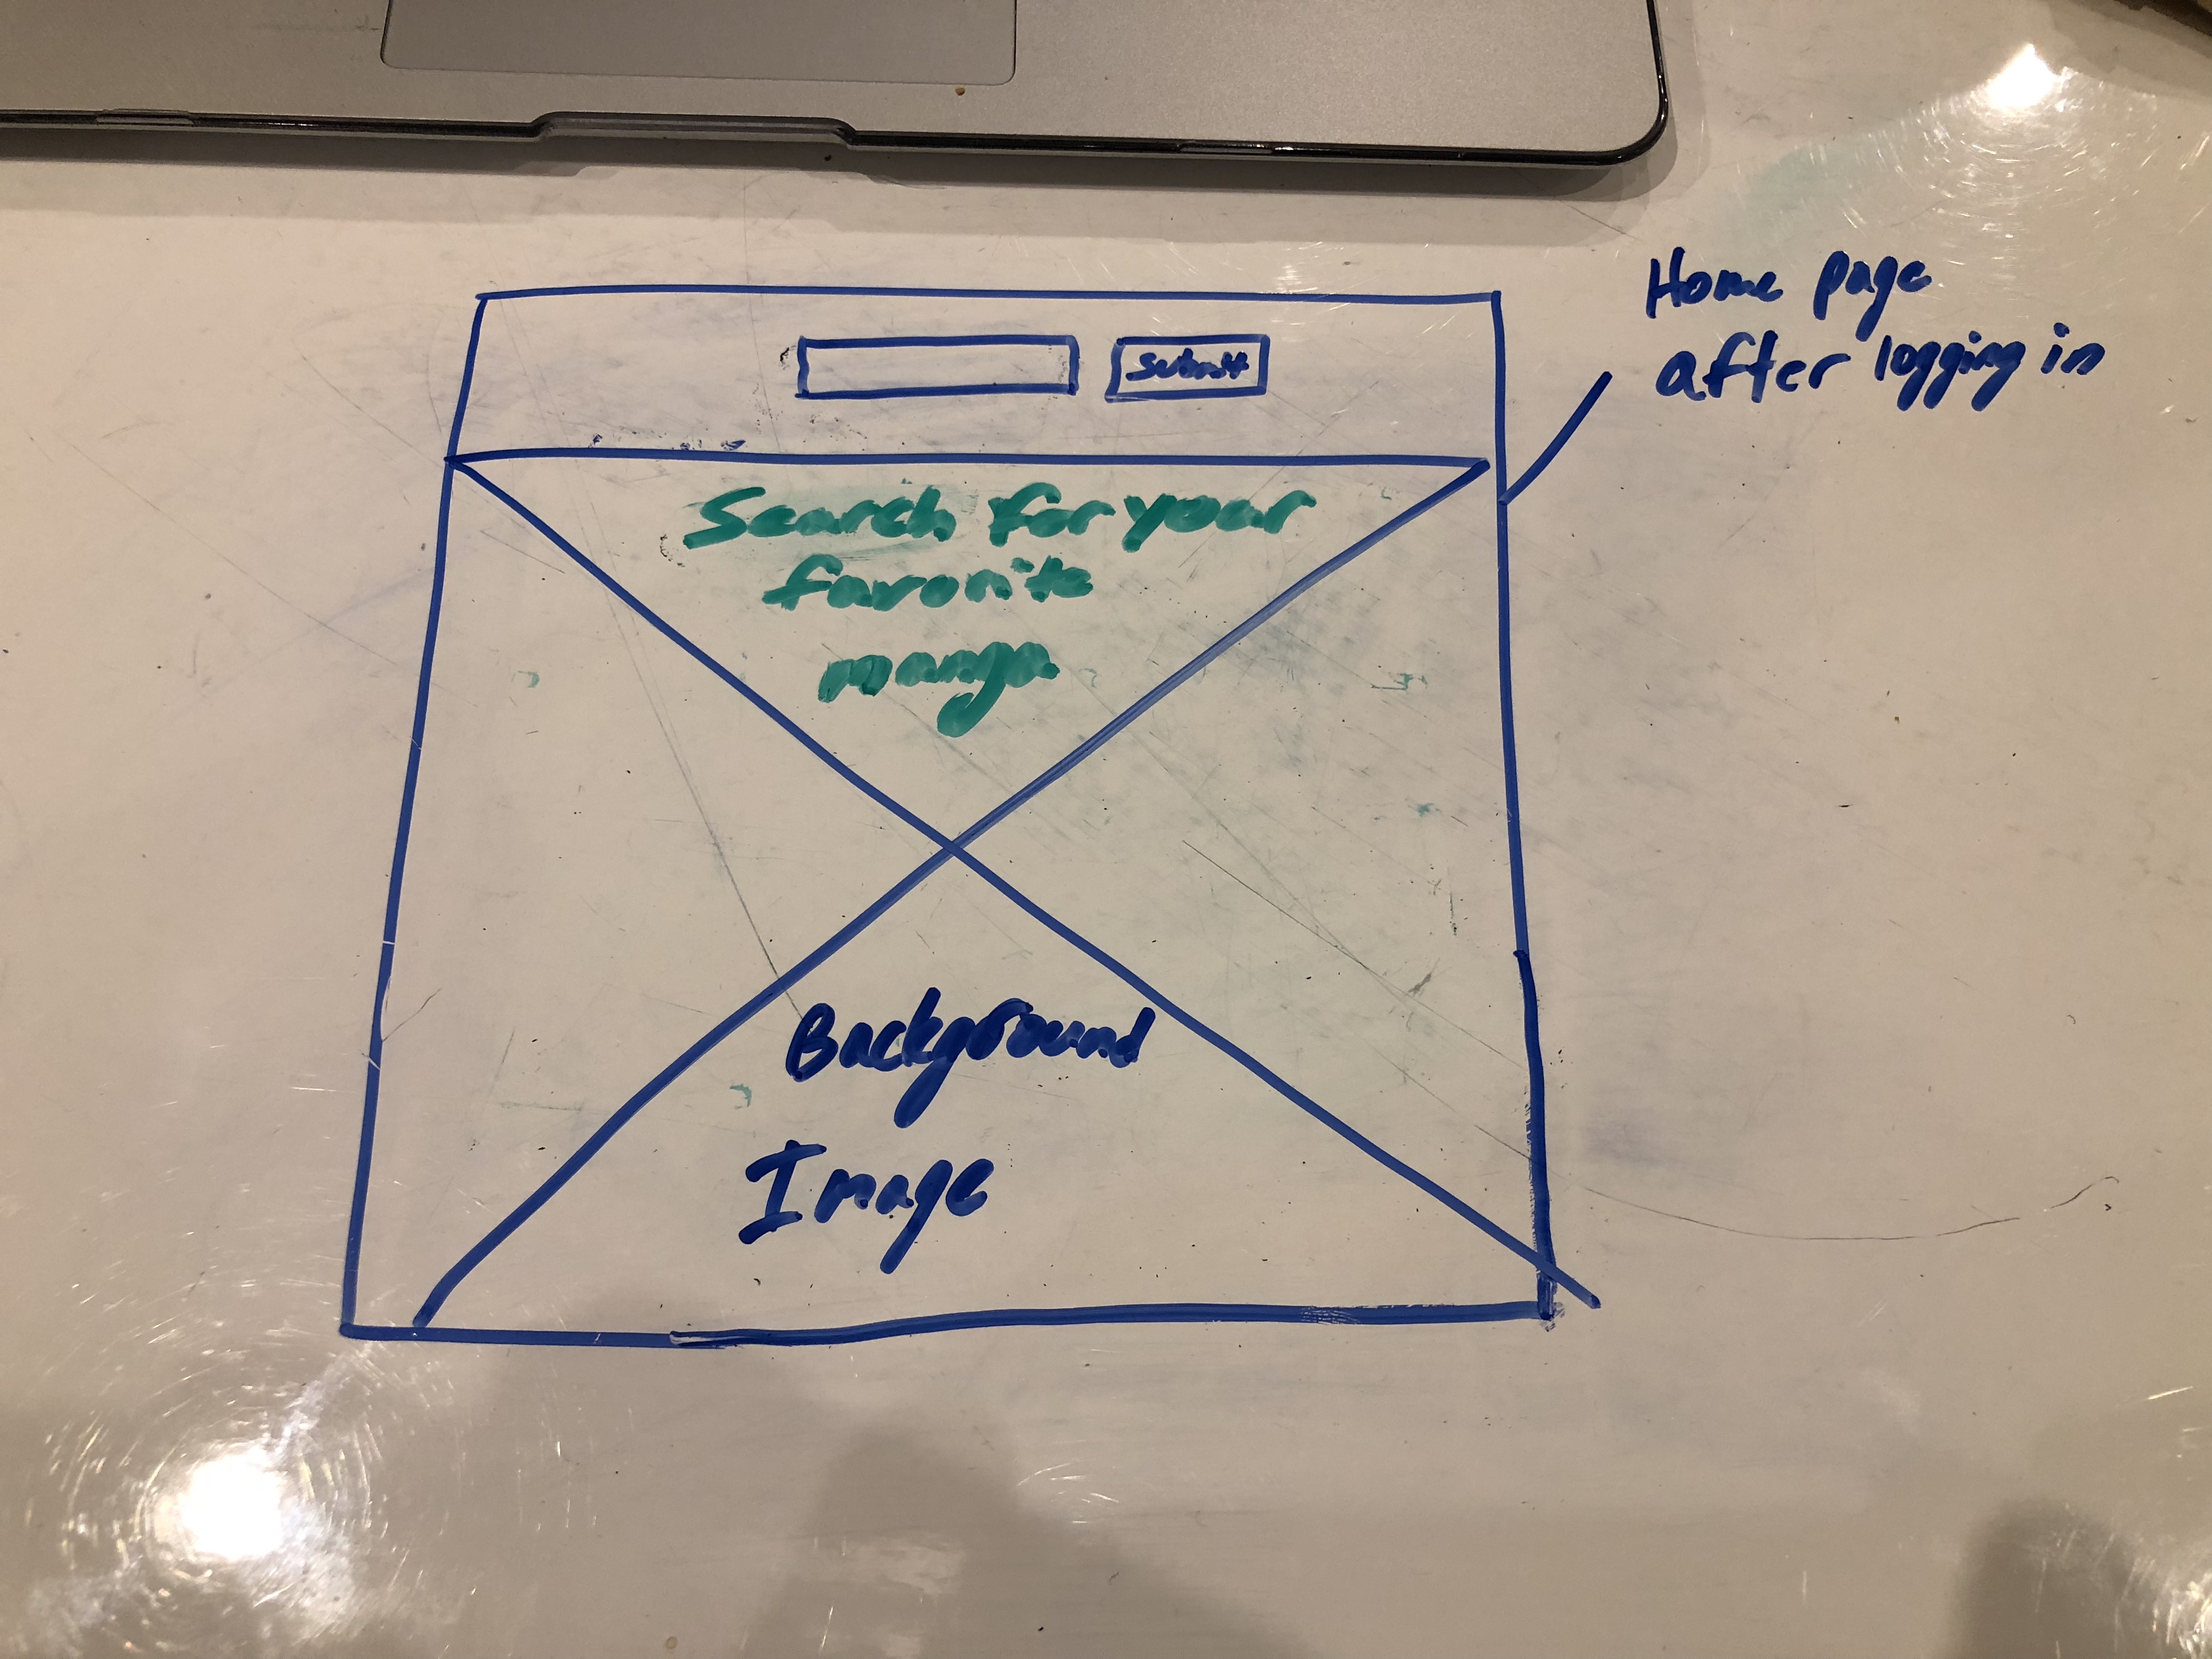 Home page
after logging in
Submit
Search for your
favorite
manga
Background
Image